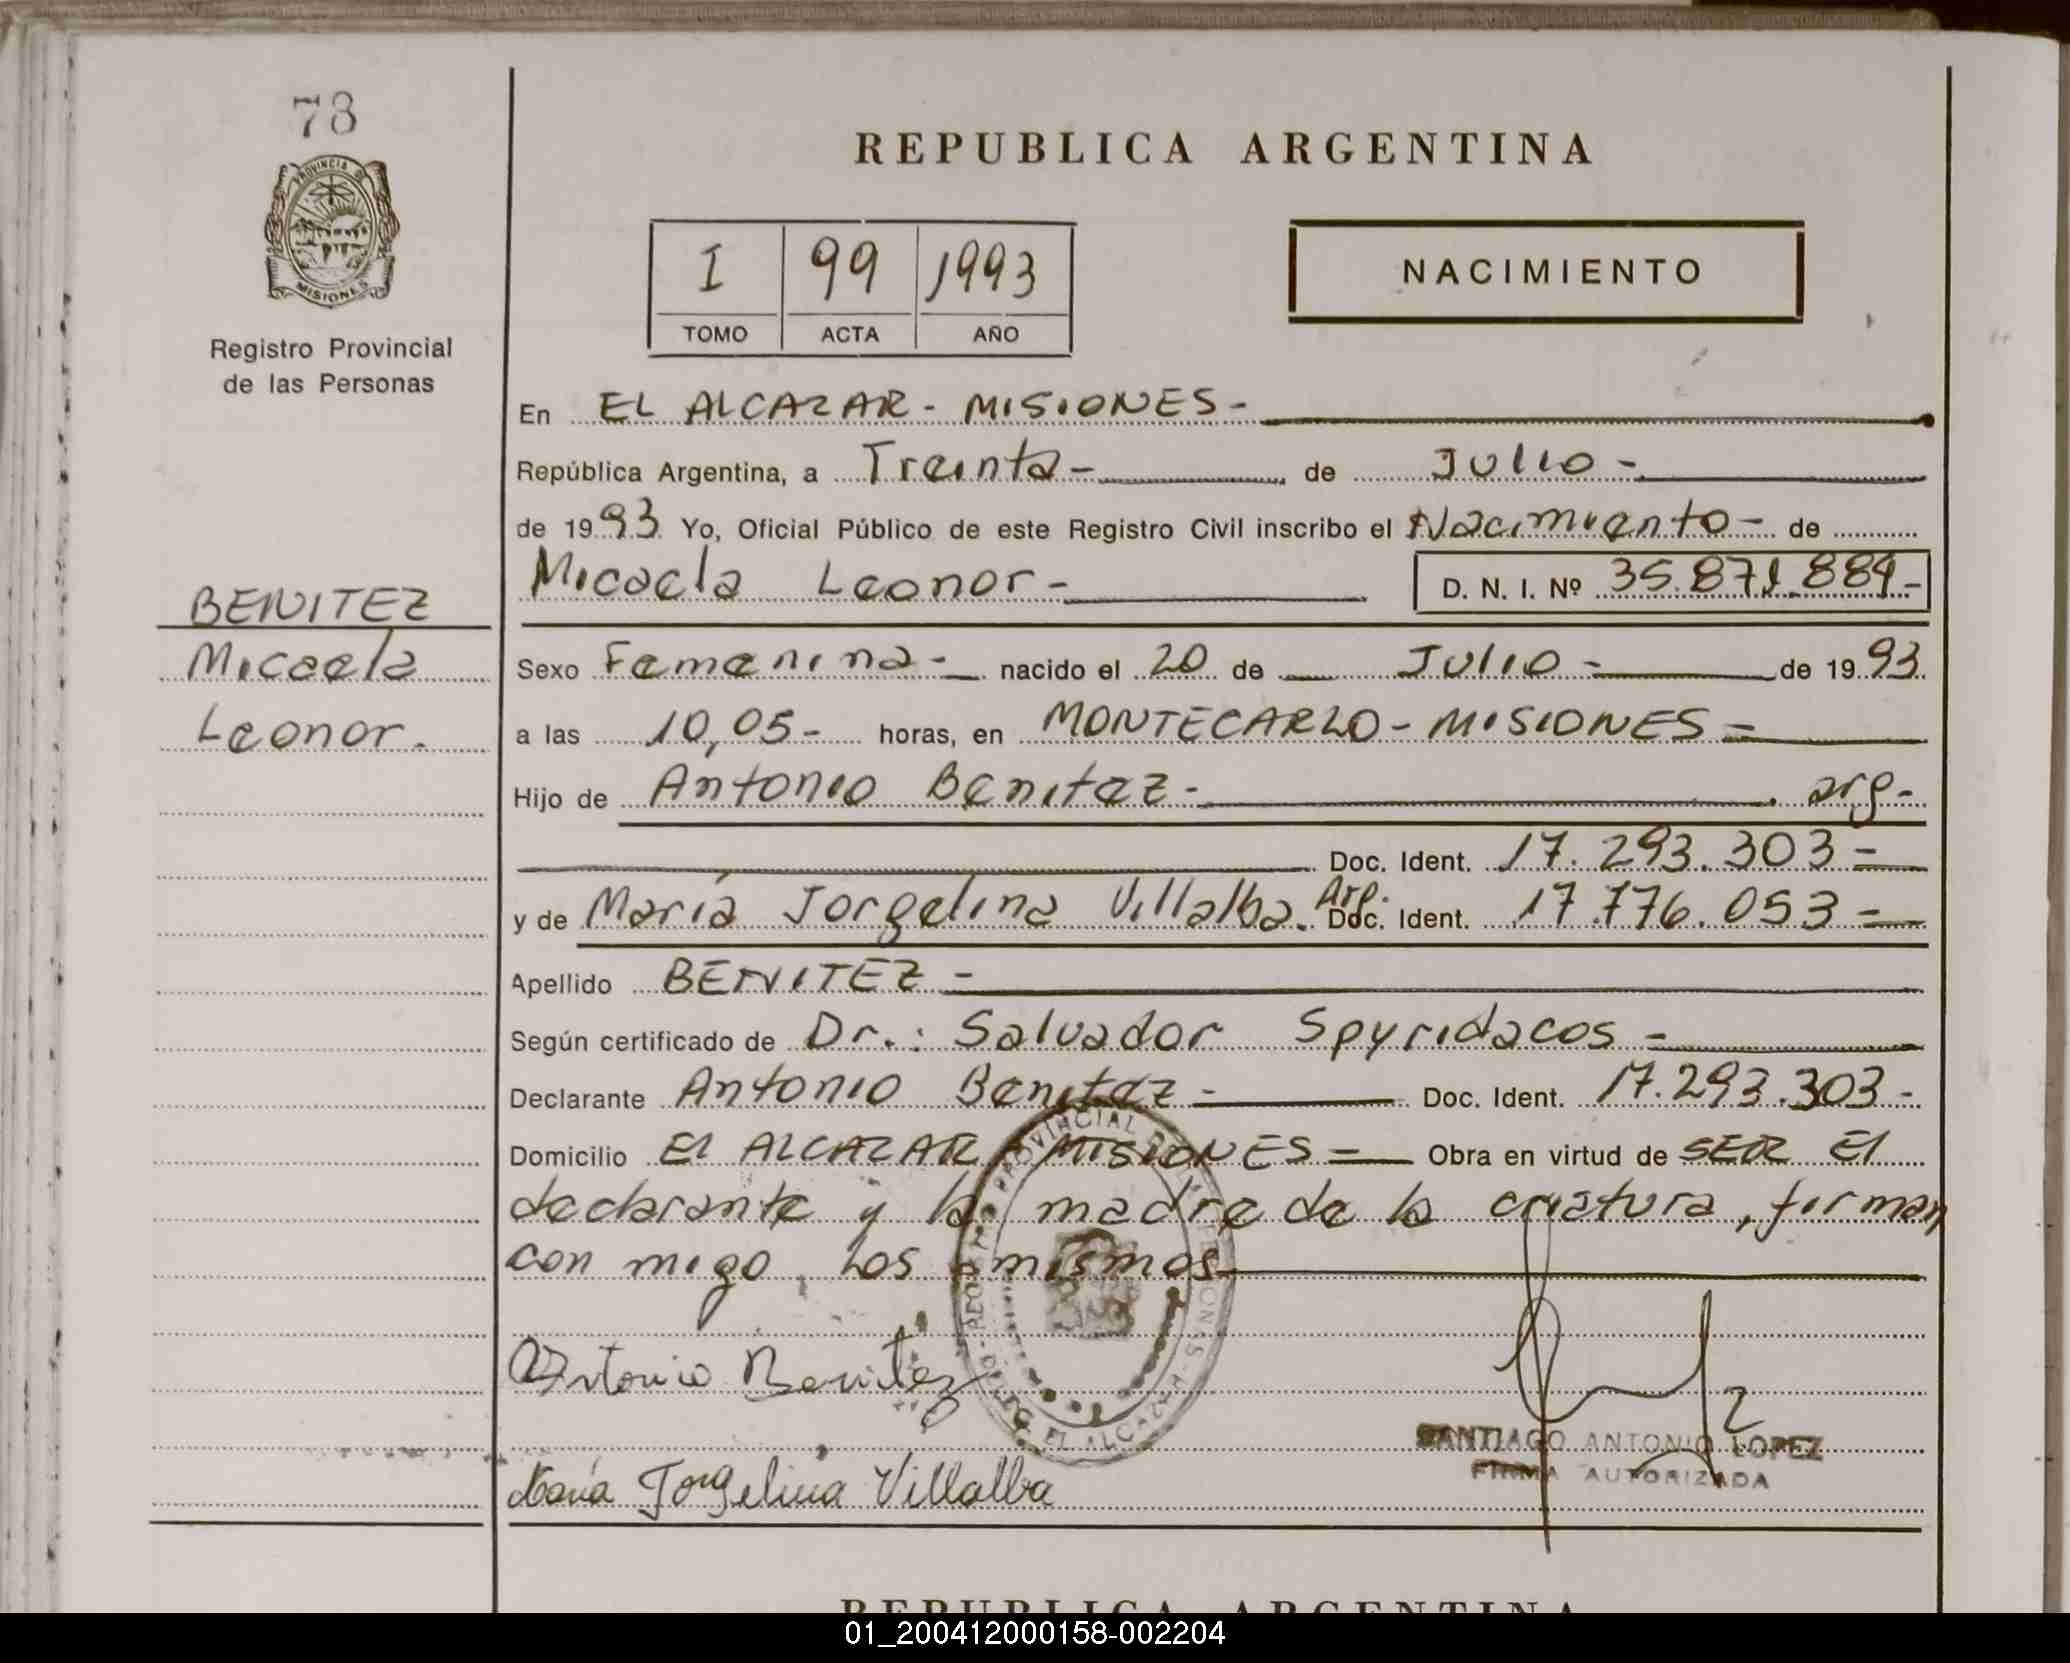 78
REPUBLICA ARGENTINA
PROVINCIA DE
MISIONES
Registro Provincial
de las Personas
I 99 1993
TOMO ACTA AÑO
NACIMIENTO
En EL ALCAZAR - MISIONES -
República Argentina, a Treinta - de Julio -
de 1993 Yo, Oficial Público de este Registro Civil inscribo el Nacimiento - de
Micaela Leonor - D. N. I. Nº 35.871.884 -
BENITEZ
Micaela
Leonor.
Sexo Femenina - nacido el 20 de Julio - de 1993
a las 10,05 - horas, en MONTECARLO - MISIONES =
Hijo de Antonio Benitez - arg -
Doc. Ident. 17.293.303 =
y de María Jorgelina Villalba. Arg. Doc. Ident. 17.776.053 =
Apellido BENITEZ -
Según certificado de Dr.: Salvador Spyridacos =
Declarante Antonio Benitez - Doc. Ident. 17.293.303 -
Domicilio El ALCAZAR MISIONES = Obra en virtud de SER El
declarante y la madre de la criatura, firman
con migo los mismos
Antonio Benitez
SANTIAGO ANTONIO LOPEZ
FIRMA AUTORIZADA
María Jorgelina Villalba
REPUBLICA ARGENTINA
01_200412000158-002204